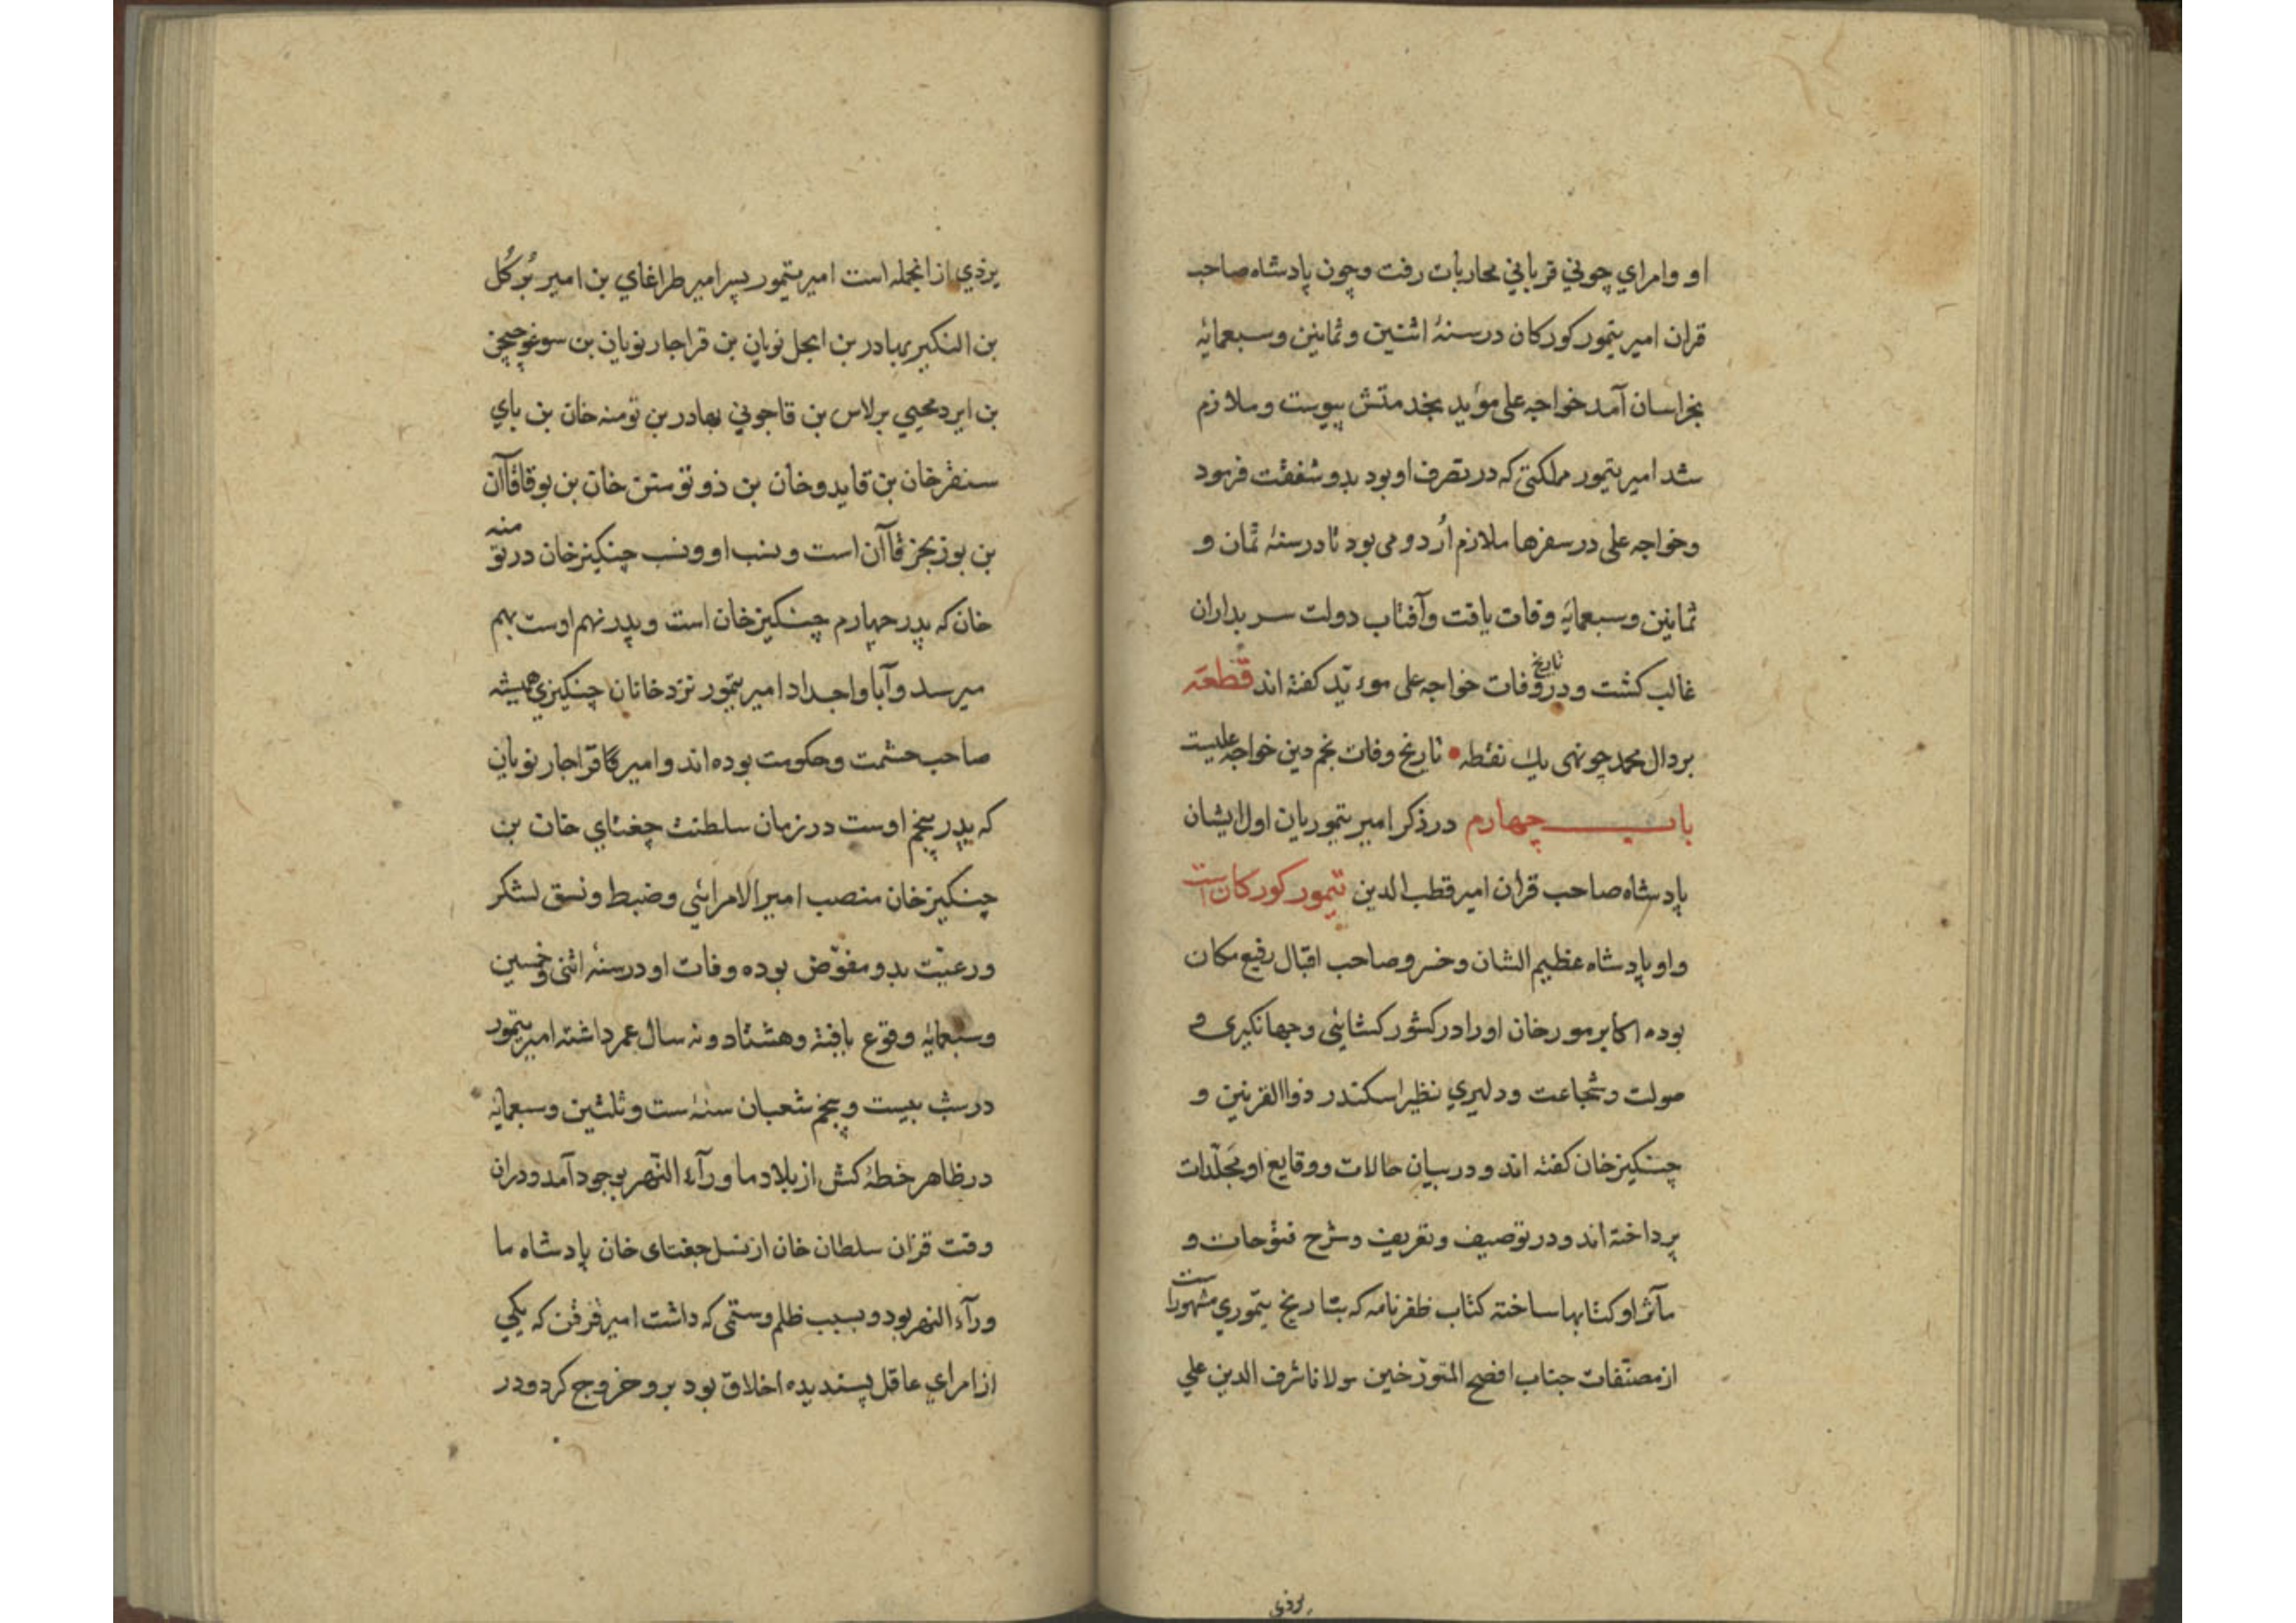 او وامراي چوني قرباني محاربات رفت وچون پادشاه صاحب
قران امیر تیمور کورکان در سنهٔ اثنین و ثمانین وسبعمایه
بخراسان آمد خواجه علی مؤید بخدمتش پیوست و ملازم
شد امیر تیمور مملکتی که در تصرف او بود بدو شفقت فرمود
وخواجه علی در سفرها ملازم اُردو می بود تا در سنهٔ ثمان و
ثمانین وسبعمایه وفات یافت وآفتاب دولت سربداران
غالب کشت و در تاریخ وفات خواجه علی موءیّد کفته اند قطعه
بر دال محمد چو نهی یك نقطه تاریخ وفات نجم دین خواجه علیست
باب چهارم در ذکر امیر تیموریان اول ایشان
پادشاه صاحب قران امیر قطب الدین تیمور کورکان است
واو پادشاه عظیم الشان وخسرو صاحب اقبال رفیع مکان
بوده اکابر مورخان اورا در کشور کشایئی وجهانکیری و
صولت وشجاعت ودلیري نظیر اسکندر ذواالقرنین و
چنکیز خان کفته اند و در بیان حالات ووقایع او مجَلّدات
پرداخته اند ودر توصیف وتعریف وشرح فتوحات و
مآثر او کتابها ساخته کتاب ظفرنامه که بتاریخ تیموري مشهور است
از مصنّفات جناب افصح المتورّخین مولانا شرف الدین علي
یزذي
یزذي از انجمله است امیر تیمور پسر امیر طراغاي بن امیر بُرکُل
بن النکیر بهادر بن ایجل نویان بن قراجار نویان بن سوغوجیجن
بن ایردمجیي برلاس بن قاجوني بهادر بن تومنه خان بن باي
سنقر خان بن قایدو خان بن ذوتوستن خان بن بوقا قاآن
بن بوزنجز قاآن است ونسب او ونسب چنکیز خان در تومنه
خان که پدر چهارم چنکیز خان است وپدر نهم اوست بهم
میرسد وآبا واجداد امیر تیمور نزد خانان چنکیزي همیشه
صاحب حشمت وحکومت بوده اند و امیر قراجار نویان
که پدر پنجم اوست در زمان سلطنت چغتاي خان بن
چنکیز خان منصب امیر الامرائی وضبط ونسق لشکر
ورعیّت بدو مفوّض بوده وفات او در سنهٔ اثنی وخمسین
وسبعمایه وقوع یافته وهشتاد ونه سال عمر داشته امیر تیمور
در شب بیست وپنجم شعبان سنهٔ ست وثلثین وسبعمایه
در ظاهر خطهٔ کش از بلاد ماورآء النّهر بوجود آمد ودران
وقت قزان سلطان خان از نسل جغتای خان پادشاه ما
ورآء النهر بود و بسبب ظلم وستمی که داشت امیر قزقن که یکي
از امراي عاقل پسندیده اخلاق بود برو خروج کرد ودر